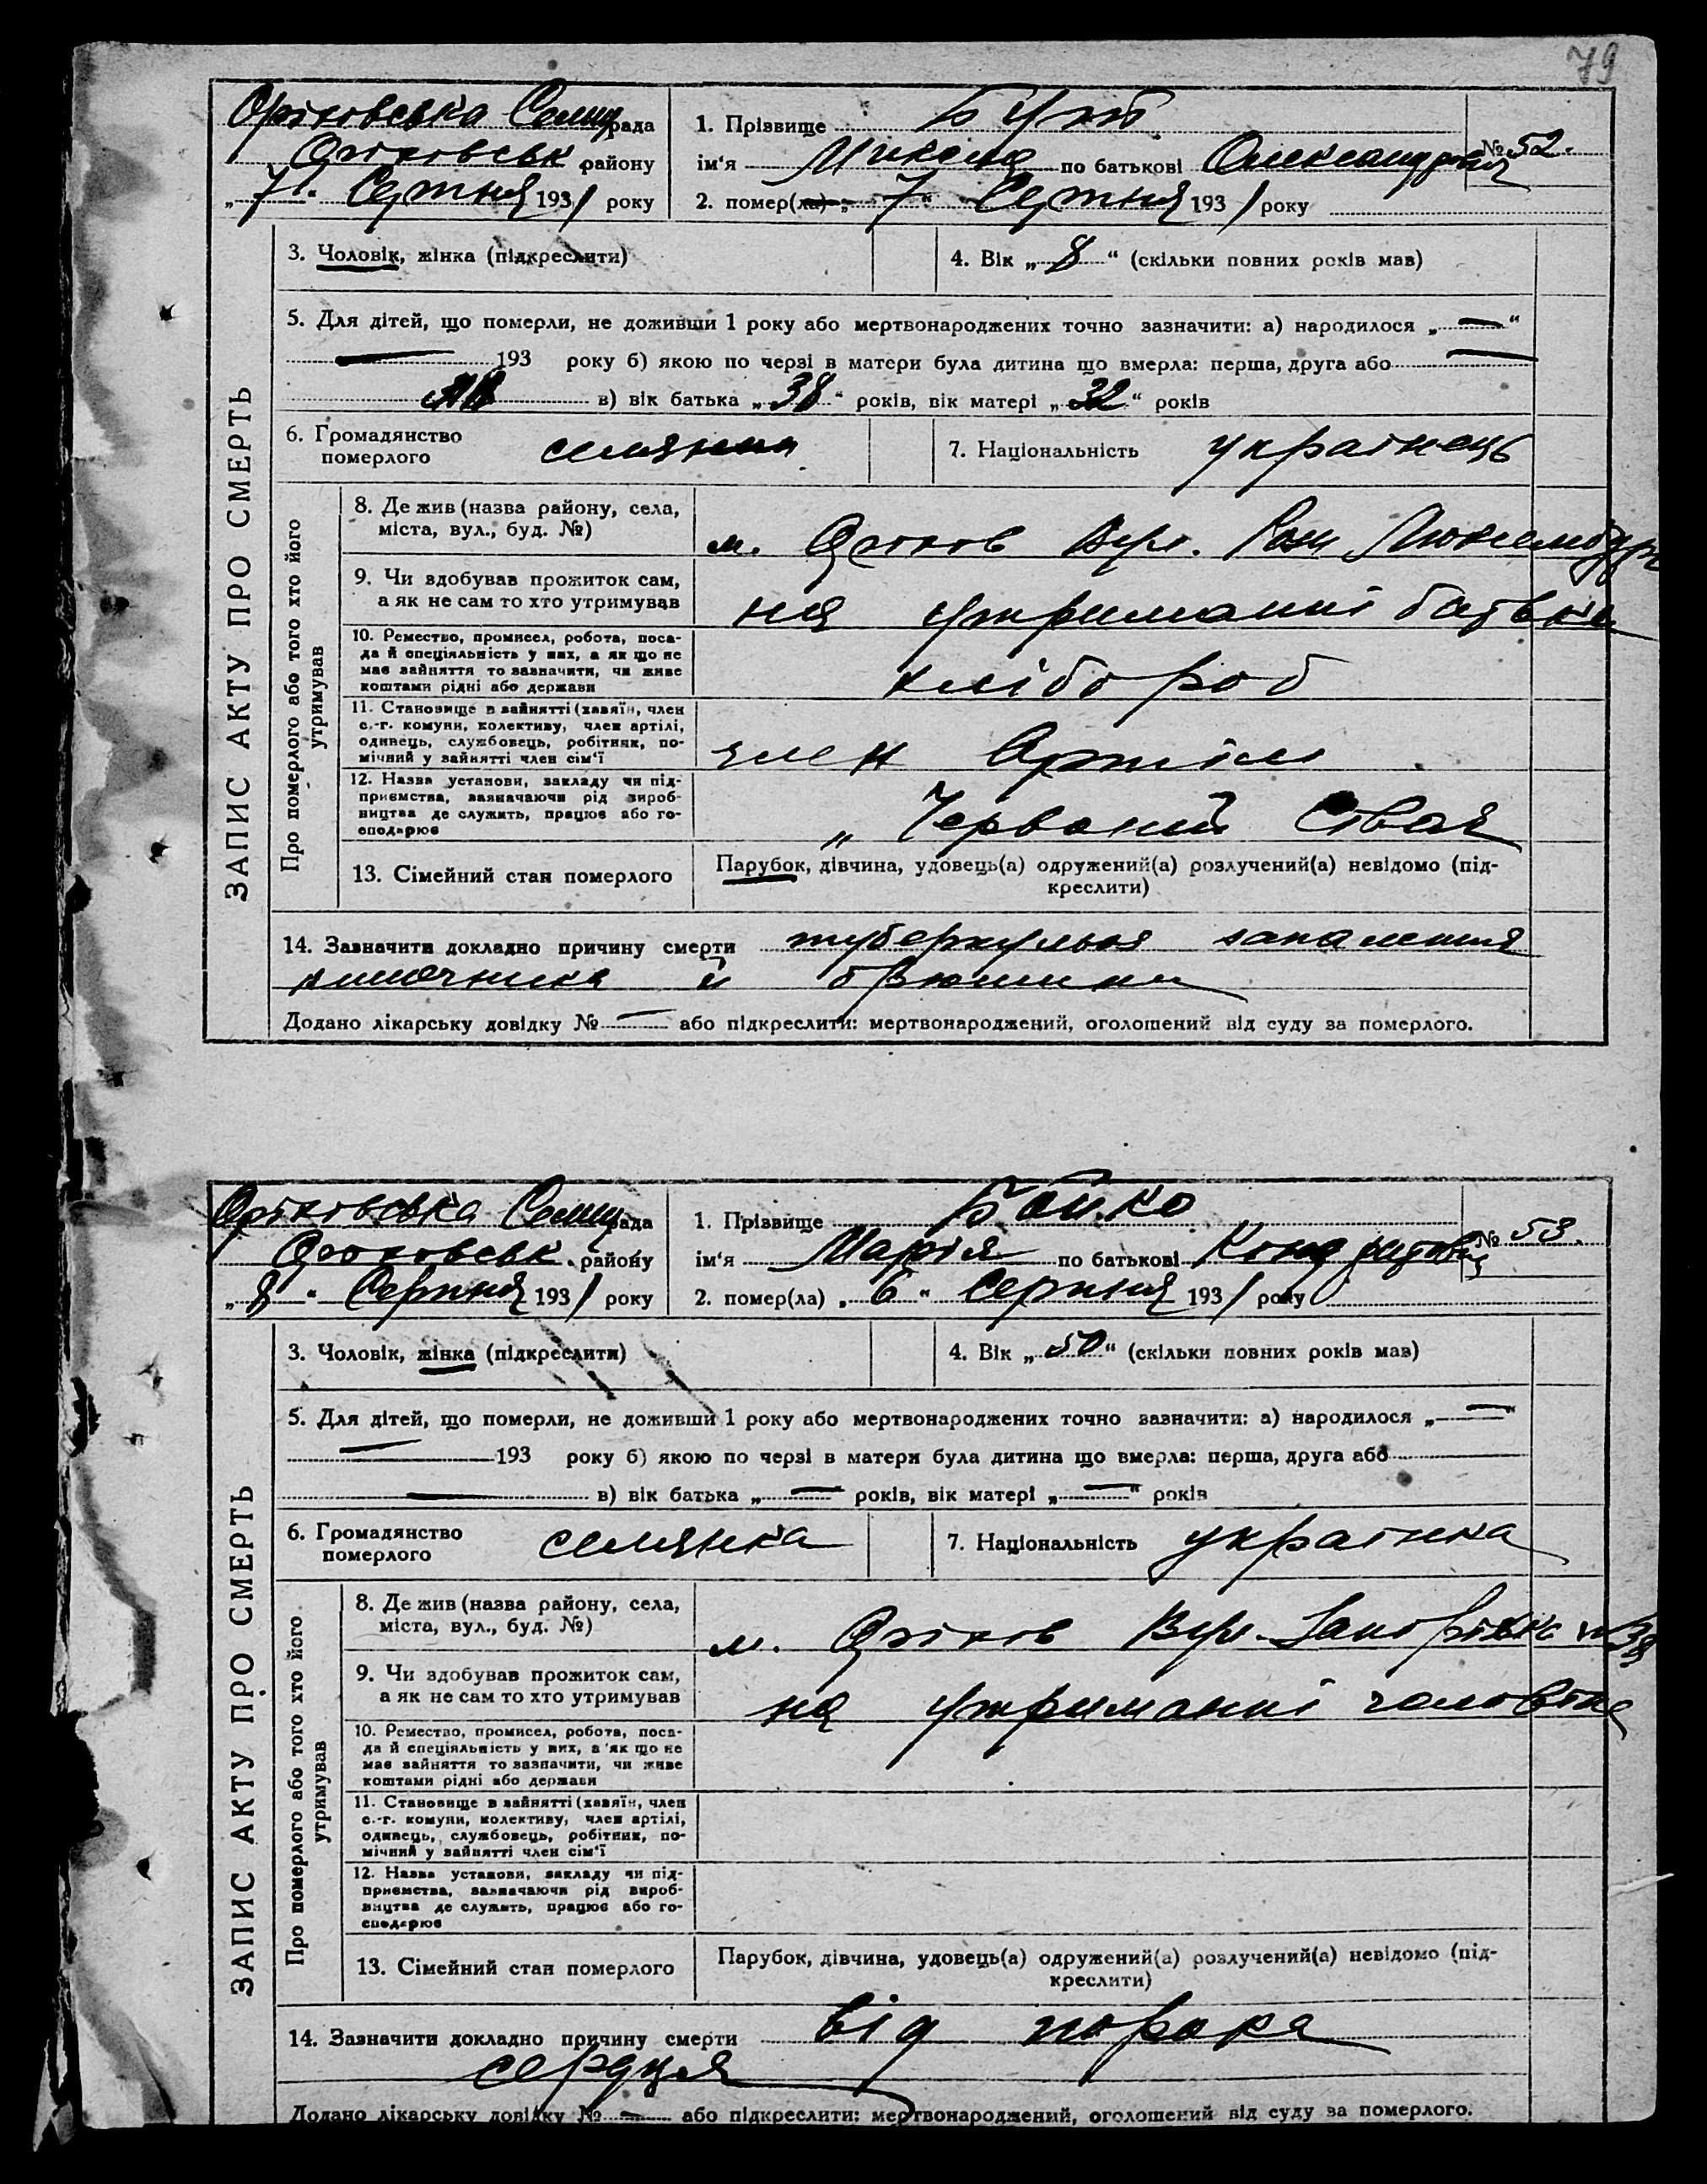 79
Оріховська Селищ рада
Оріховськ. району
„7“ Серпня 1931 року
1. Прізвище
ім'я Микола по батькові Олександрович
№ 52.
2. помер(ла) „7“ Серпня 1931 року
ЗАПИС АКТУ ПРО СМЕРТЬ
3. Чоловік, жінка (підкреслити)
4. Вік „8“ (скільки повних років мав)
5. Для дітей, що померли, не доживши 1 року або мертвонароджених точно зазначити: а) народилося „—“
— 193 року б) якою по черзі в матери була дитина що вмерла: перша, друга або —
в) вік батька „38“ років, вік матері „32“ років
6. Громадянство
померлого
селянин
7. Національність українець
Про померлого або того хто його
утримував
8. Де жив (назва району, села,
міста, вул., буд. №)
м. Оріхов Вул. Рози Люксембург
9. Чи здобував прожиток сам,
а як не сам то хто утримував
на утриманні батька
10. Ремество, промисел, робота, поса-
да й спеціяльність у них, а як що не
має зайняття то зазначити, чи живе
коштами рідні або держави
хлібороб
11. Становище в зайнятті (хазяїн, член
с.-г. комуни, колективу, член артілі,
одинець, службовець, робітник, по-
мічний у зайнятті член сім'ї
член Артіли
12. Назва установи, закладу чи під-
приємства, зазначаючи рід вироб-
ництва де служить, працює або го-
сподарює
„Червоний
13. Сімейний стан померлого
Парубок, дівчина, удовець(а) одружений(а) розлучений(а) невідомо (під-
креслити)
14. Зазначити докладно причину смерти туберкульоз запалення
кишечника й брюшини
Додано лікарську довідку № — або підкреслити: мертвонароджений, оголошений від суду за померлого.
Оріховська Селищ рада
Оріховськ. району
„8“ Серпня 1931 року
1. Прізвище Бойко
ім'я Марія по батькові Кондратовна
№ 53.
2. помер(ла) „6“ Серпня 1931 року
ЗАПИС АКТУ ПРО СМЕРТЬ
3. Чоловік, жінка (підкреслити)
4. Вік „50“ (скільки повних років мав)
5. Для дітей, що померли, не доживши 1 року або мертвонароджених точно зазначити: а) народилося „—“
— 193 року б) якою по черзі в матери була дитина що вмерла: перша, друга або
— в) вік батька „—“ років, вік матері „—“ років
6. Громадянство
померлого
селянка
7. Національність українка
Про померлого або того хто його
утримував
8. Де жив (назва району, села,
міста, вул., буд. №)
м. Оріхов Вул.
9. Чи здобував прожиток сам,
а як не сам то хто утримував
на утриманні чоловіка
10. Ремество, промисел, робота, поса-
да й спеціяльність у них, а як що не
має зайняття то зазначити, чи живе
коштами рідні або держави
11. Становище в зайнятті (хазяїн, член
с.-г. комуни, колективу, член артілі,
одинець, службовець, робітник, по-
мічний у зайнятті член сім'ї
12. Назва установи, закладу чи під-
приємства, зазначаючи рід вироб-
ництва де служить, працює або го-
сподарює
13. Сімейний стан померлого
Парубок, дівчина, удовець(а) одружений(а) розлучений(а) невідомо (під-
креслити)
14. Зазначити докладно причину смерти від порока
сердця
Додано лікарську довідку № — або підкреслити: мертвонароджений, оголошений від суду за померлого.